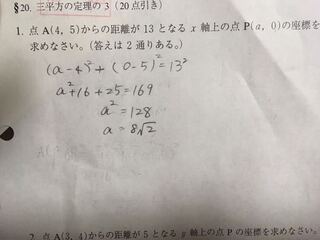 §20. 三平方の定理の 3 (20 点引き)
1. 点 A(4, 5)からの距離が 13 となる x 軸上の点 P(a, 0)の座標を
求めなさい。(答えは 2 通りある。)
(a-4)²+(0-5)²=13²
a²+16+25=169
a²=128
a=8√2
2. 点 A(3, 4)からの距離が 5 となる y 軸上の点 P の座標を求めなさい。